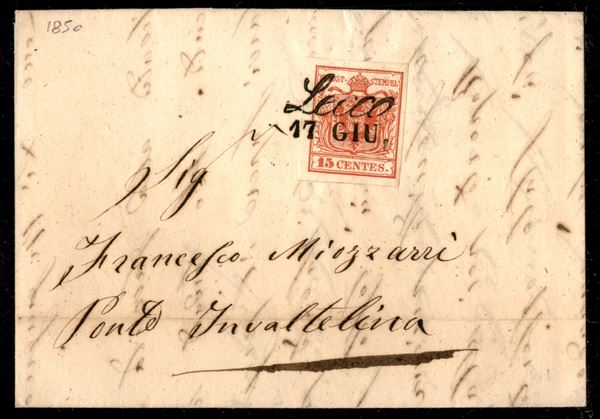 1850
KKPOST-STEMPEL
Lecco
17 GIU,
15 CENTES.
Sig
Francesco Miozzarri
Ponte Invaltelina